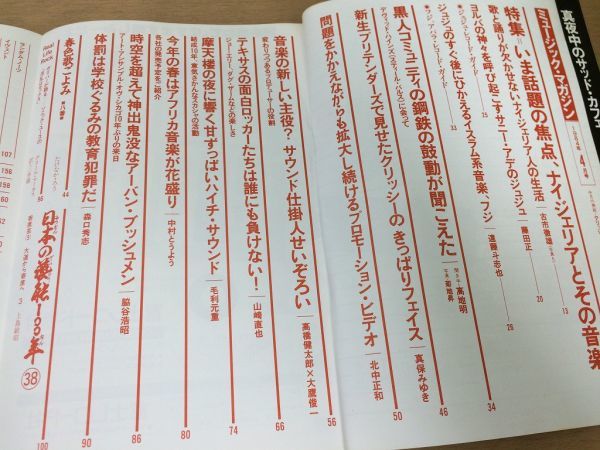 真夜中のサッド・カフェ
ミュージック・マガジン
1984年4月号
特集=いま話題の焦点、ナイジェリアとその音楽
歌と踊りが欠かせないナイジェリア人の生活
古市徹雄
13
ヨルバの神々を呼び起こすサニー・アデのジュジュ
藤田正
20
ジュジュのすぐ後にひかえるイスラム系音楽、フジ
遠藤斗志也
26
33
黒人コミュニティの鋼鉄の鼓動が聞こえた
高地明
菊地昇
34
新生プリテンダーズで見せたクリッシーのきっぱりフェイス
真保みゆき
46
問題をかかえながらも拡大し続けるプロモーション・ビデオ
北中正和
50
音楽の新しい主役?サウンド仕掛人せいぞろい
変わりつつあるプロデューサーの役割
高橋健太郎×大鷹俊一
56
テキサスの面白ロッカーたちは誰にも負けない!
山崎直也
66
摩天楼の夜に響く甘ずっぱいハイチ・サウンド
毛利元重
74
今年の春はアフリカ音楽が花盛り
各社の発売予定をご紹介
中村とうよう
80
時空を超えて神出鬼没なアーバン・ブッシュメン
アート・アンサンブル・オヴ・シカゴ10年ぶりの来日
脇谷浩昭
86
体罰は学校ぐるみの教育犯罪だ
森口秀志
90
春色歌ごよみ
44
Real Life Rock
96
日本の裏戦100年
38
3
上島敏昭
100
107
156
158
60